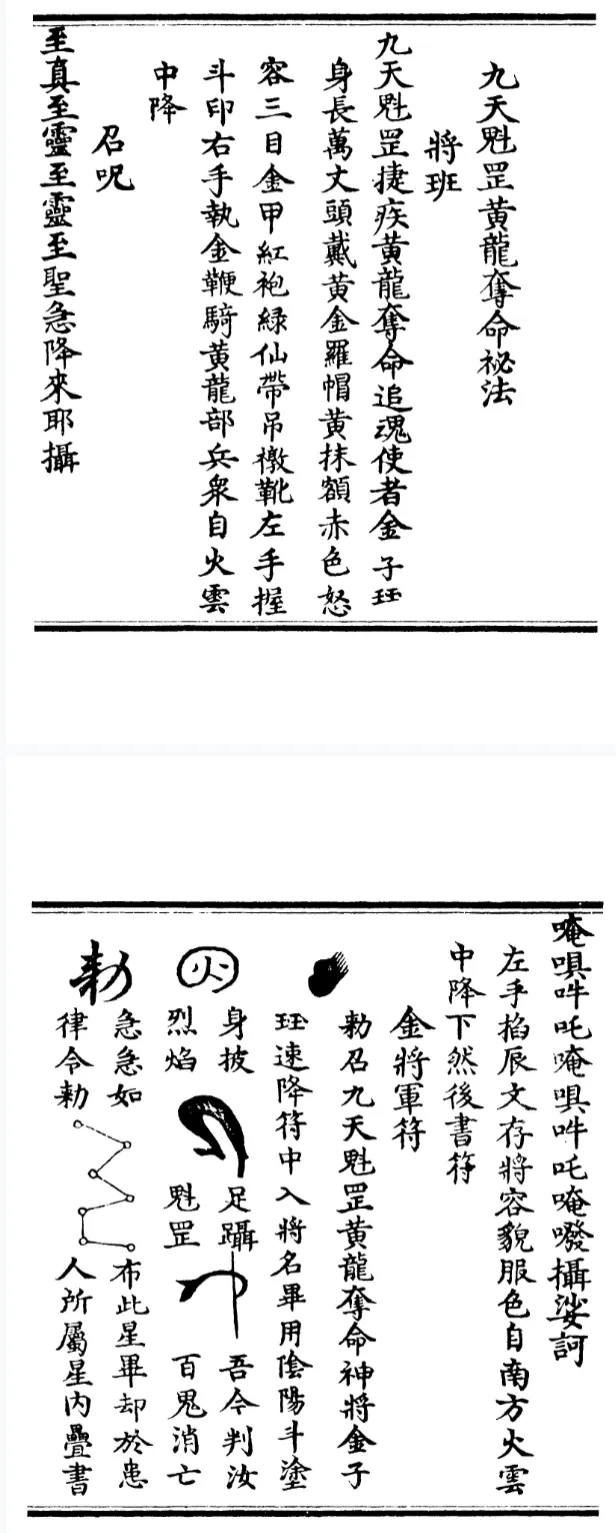 九天魁罡黃龍奪命祕法
將班
九天魁罡捷疾黃龍奪命追魂使者金子珏
身長萬丈頭戴黃金羅帽黃抹額赤色怒
容三目金甲紅袍綠仙帶吊橔靴左手握
斗印右手執金鞭騎黃龍部兵眾自火雲
中降
召呪
至真至靈至靈至聖急降來耶攝
唵吽吒唵吽吒唵攝娑訶
左手掐辰文存將容貌服色自南方火雲
中降下然後書符
金將軍符
勅召九天魁罡黃龍奪命神將金子
珏速降符中入將名畢用陰陽斗塗
火
身披
烈焰
足躡
魁罡
吾今判汝
百鬼消亡
勅
急急如
律令勅
布此星畢却於患
人所屬星內疊書